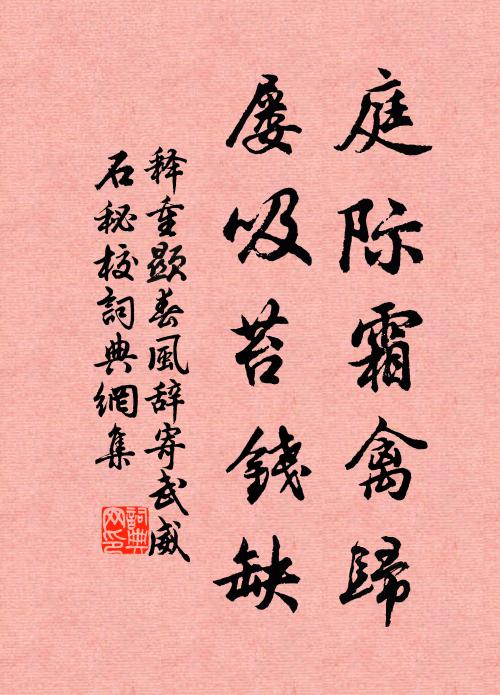 庭际霜禽歸
屡吸苔錢缺
释重顯春風辞寄武威
石秘校詞典網集
詞典
网印